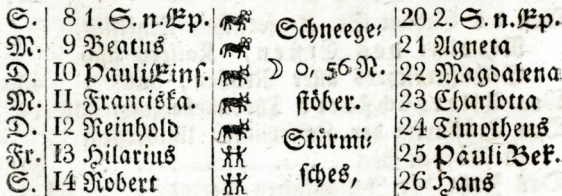 S. 8 1. S. n. Ep. Schneege- 20 2. S. n. Ep.
M. 9 Beatus 21 Agneta
D. 10 Pauli Eins. ☽ 0, 56 N. 22 Magdalena
M. 11 Franciska. stöber. 23 Charlotta
D. 12 Reinhold Stürmi- 24 Timotheus
Fr. 13 Hilarius 25 Pauli Bek.
S. 14 Robert sches, 26 Hans